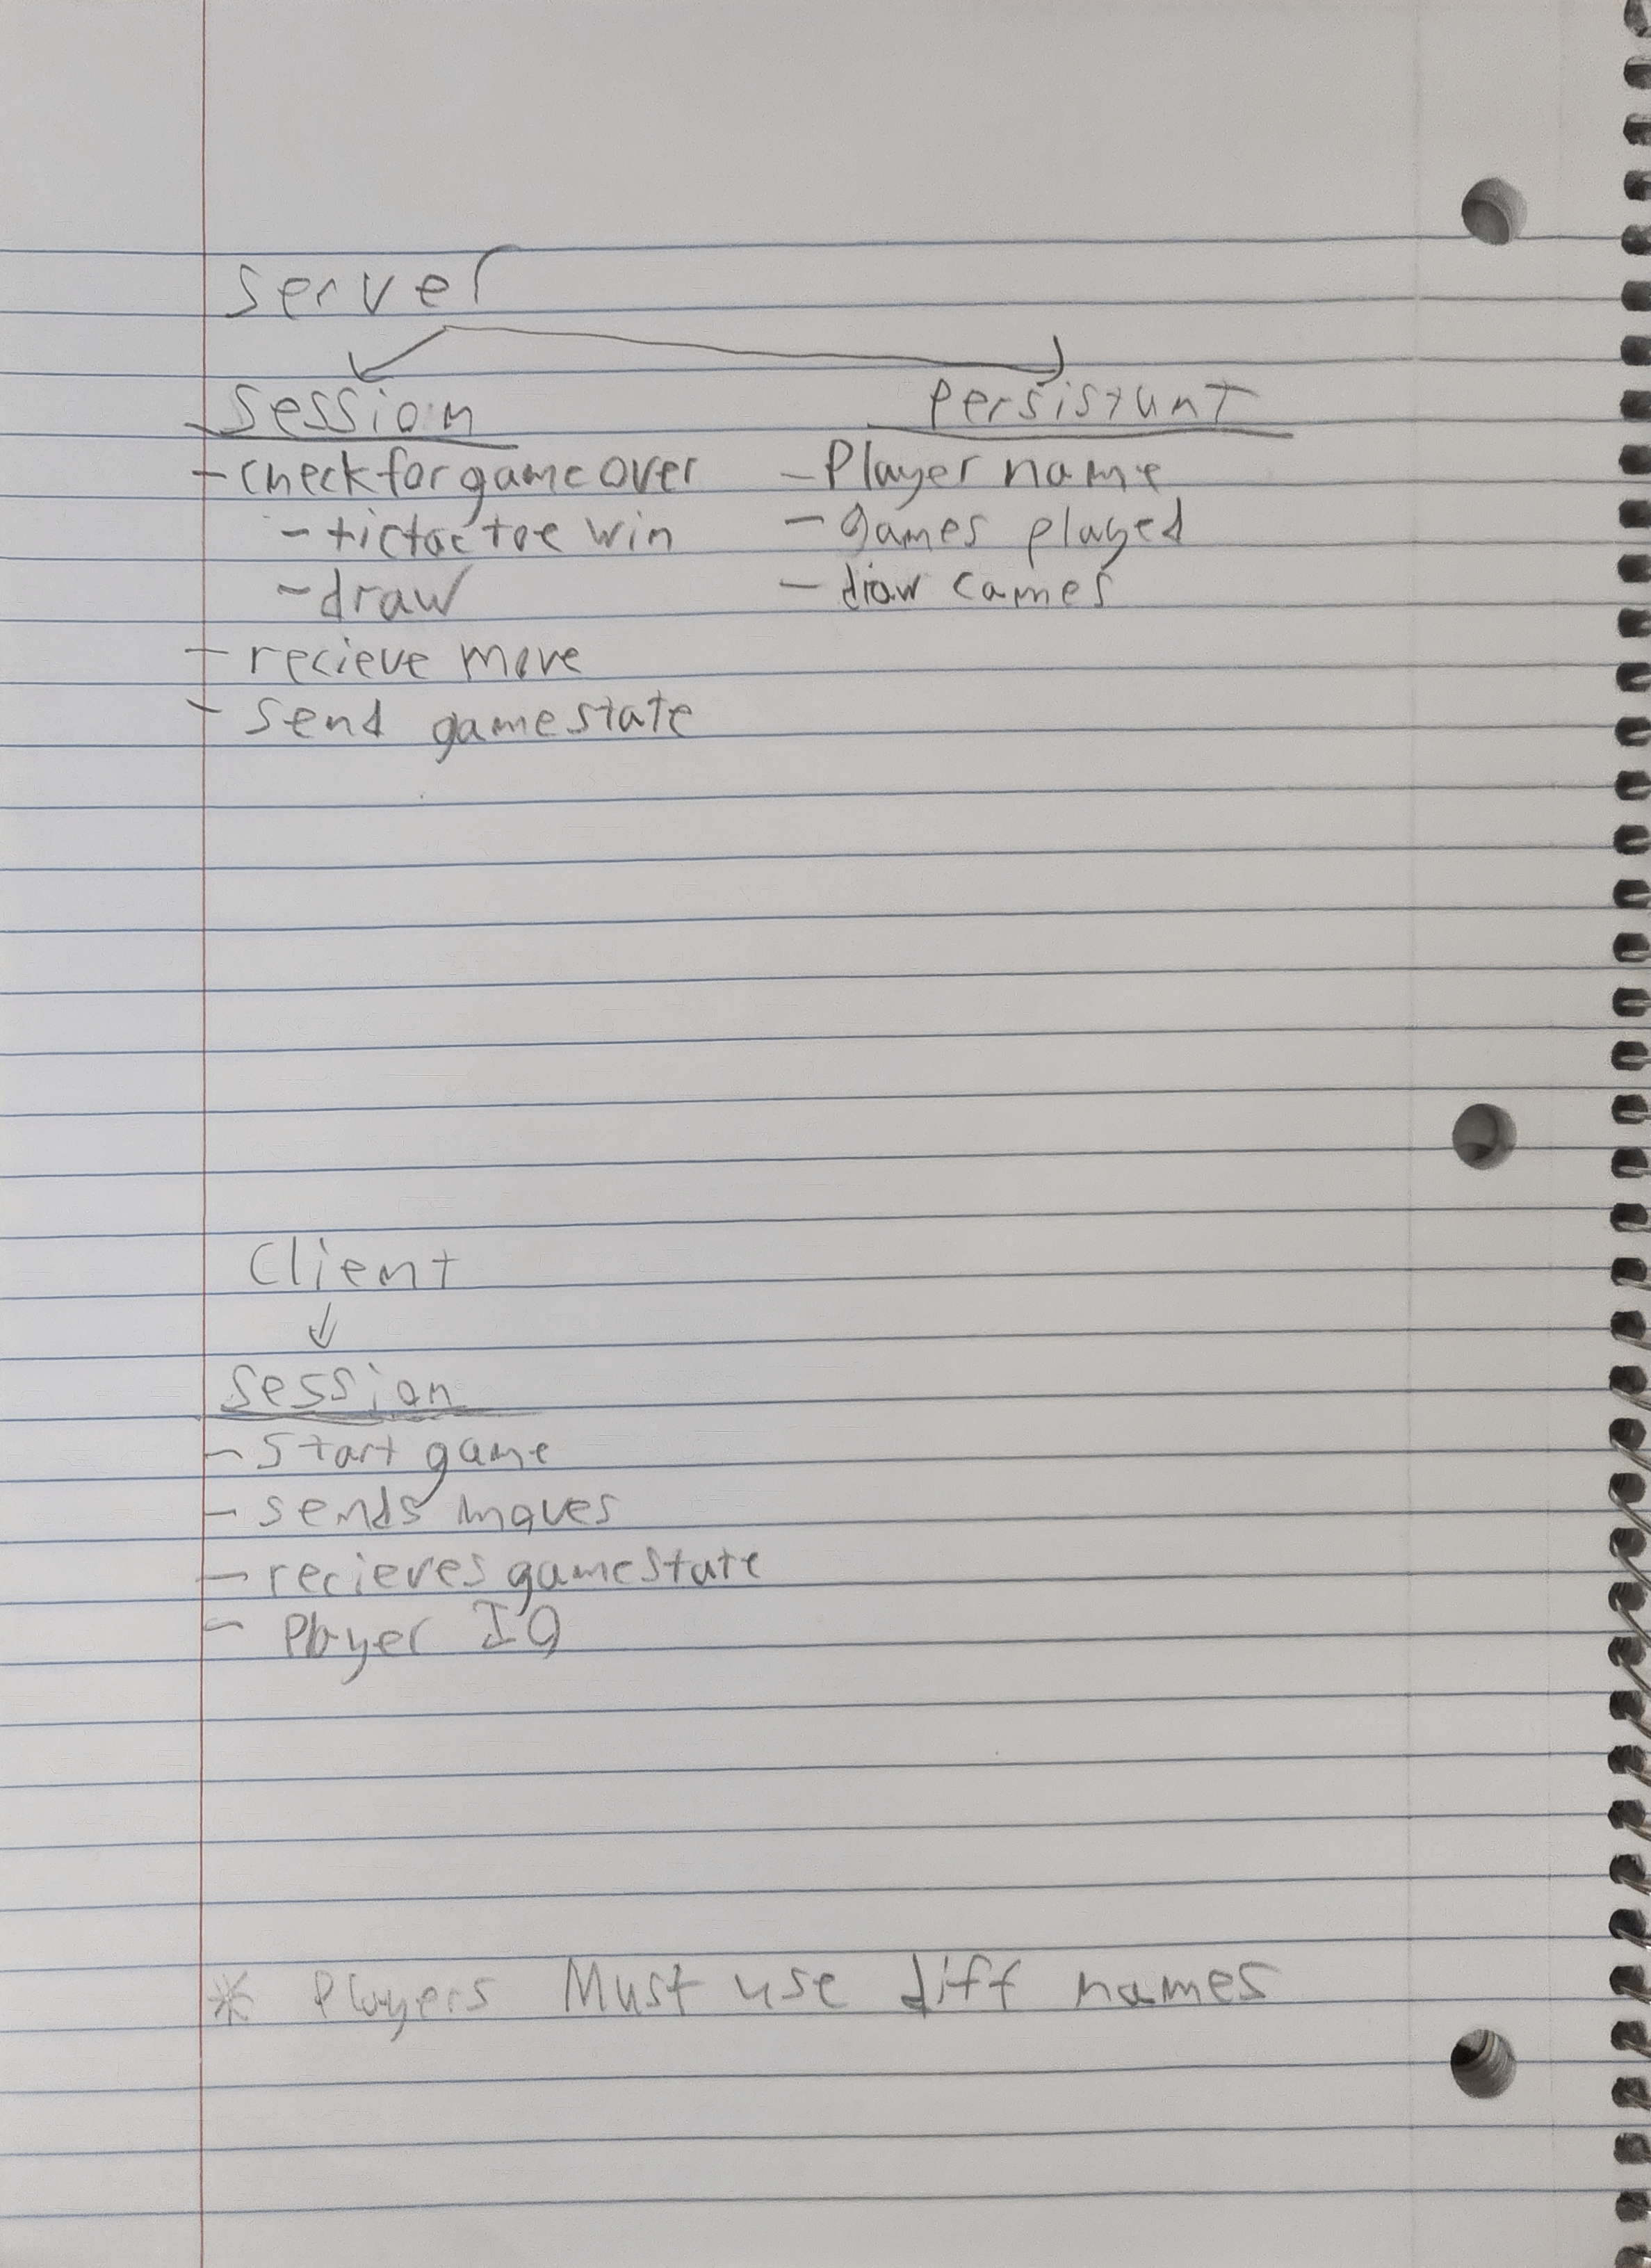 server
session
- check for game over
- tictactoe win
- draw
- recieve move
- send gamestate
persistant
- Player name
- games played
- draw games
Client
session
- Start game
- sends moves
- recieves gamestate
- Player ID
* Players Must use diff names